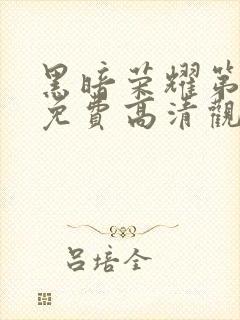 黑暗荣耀第
免費高清觀
吕培全